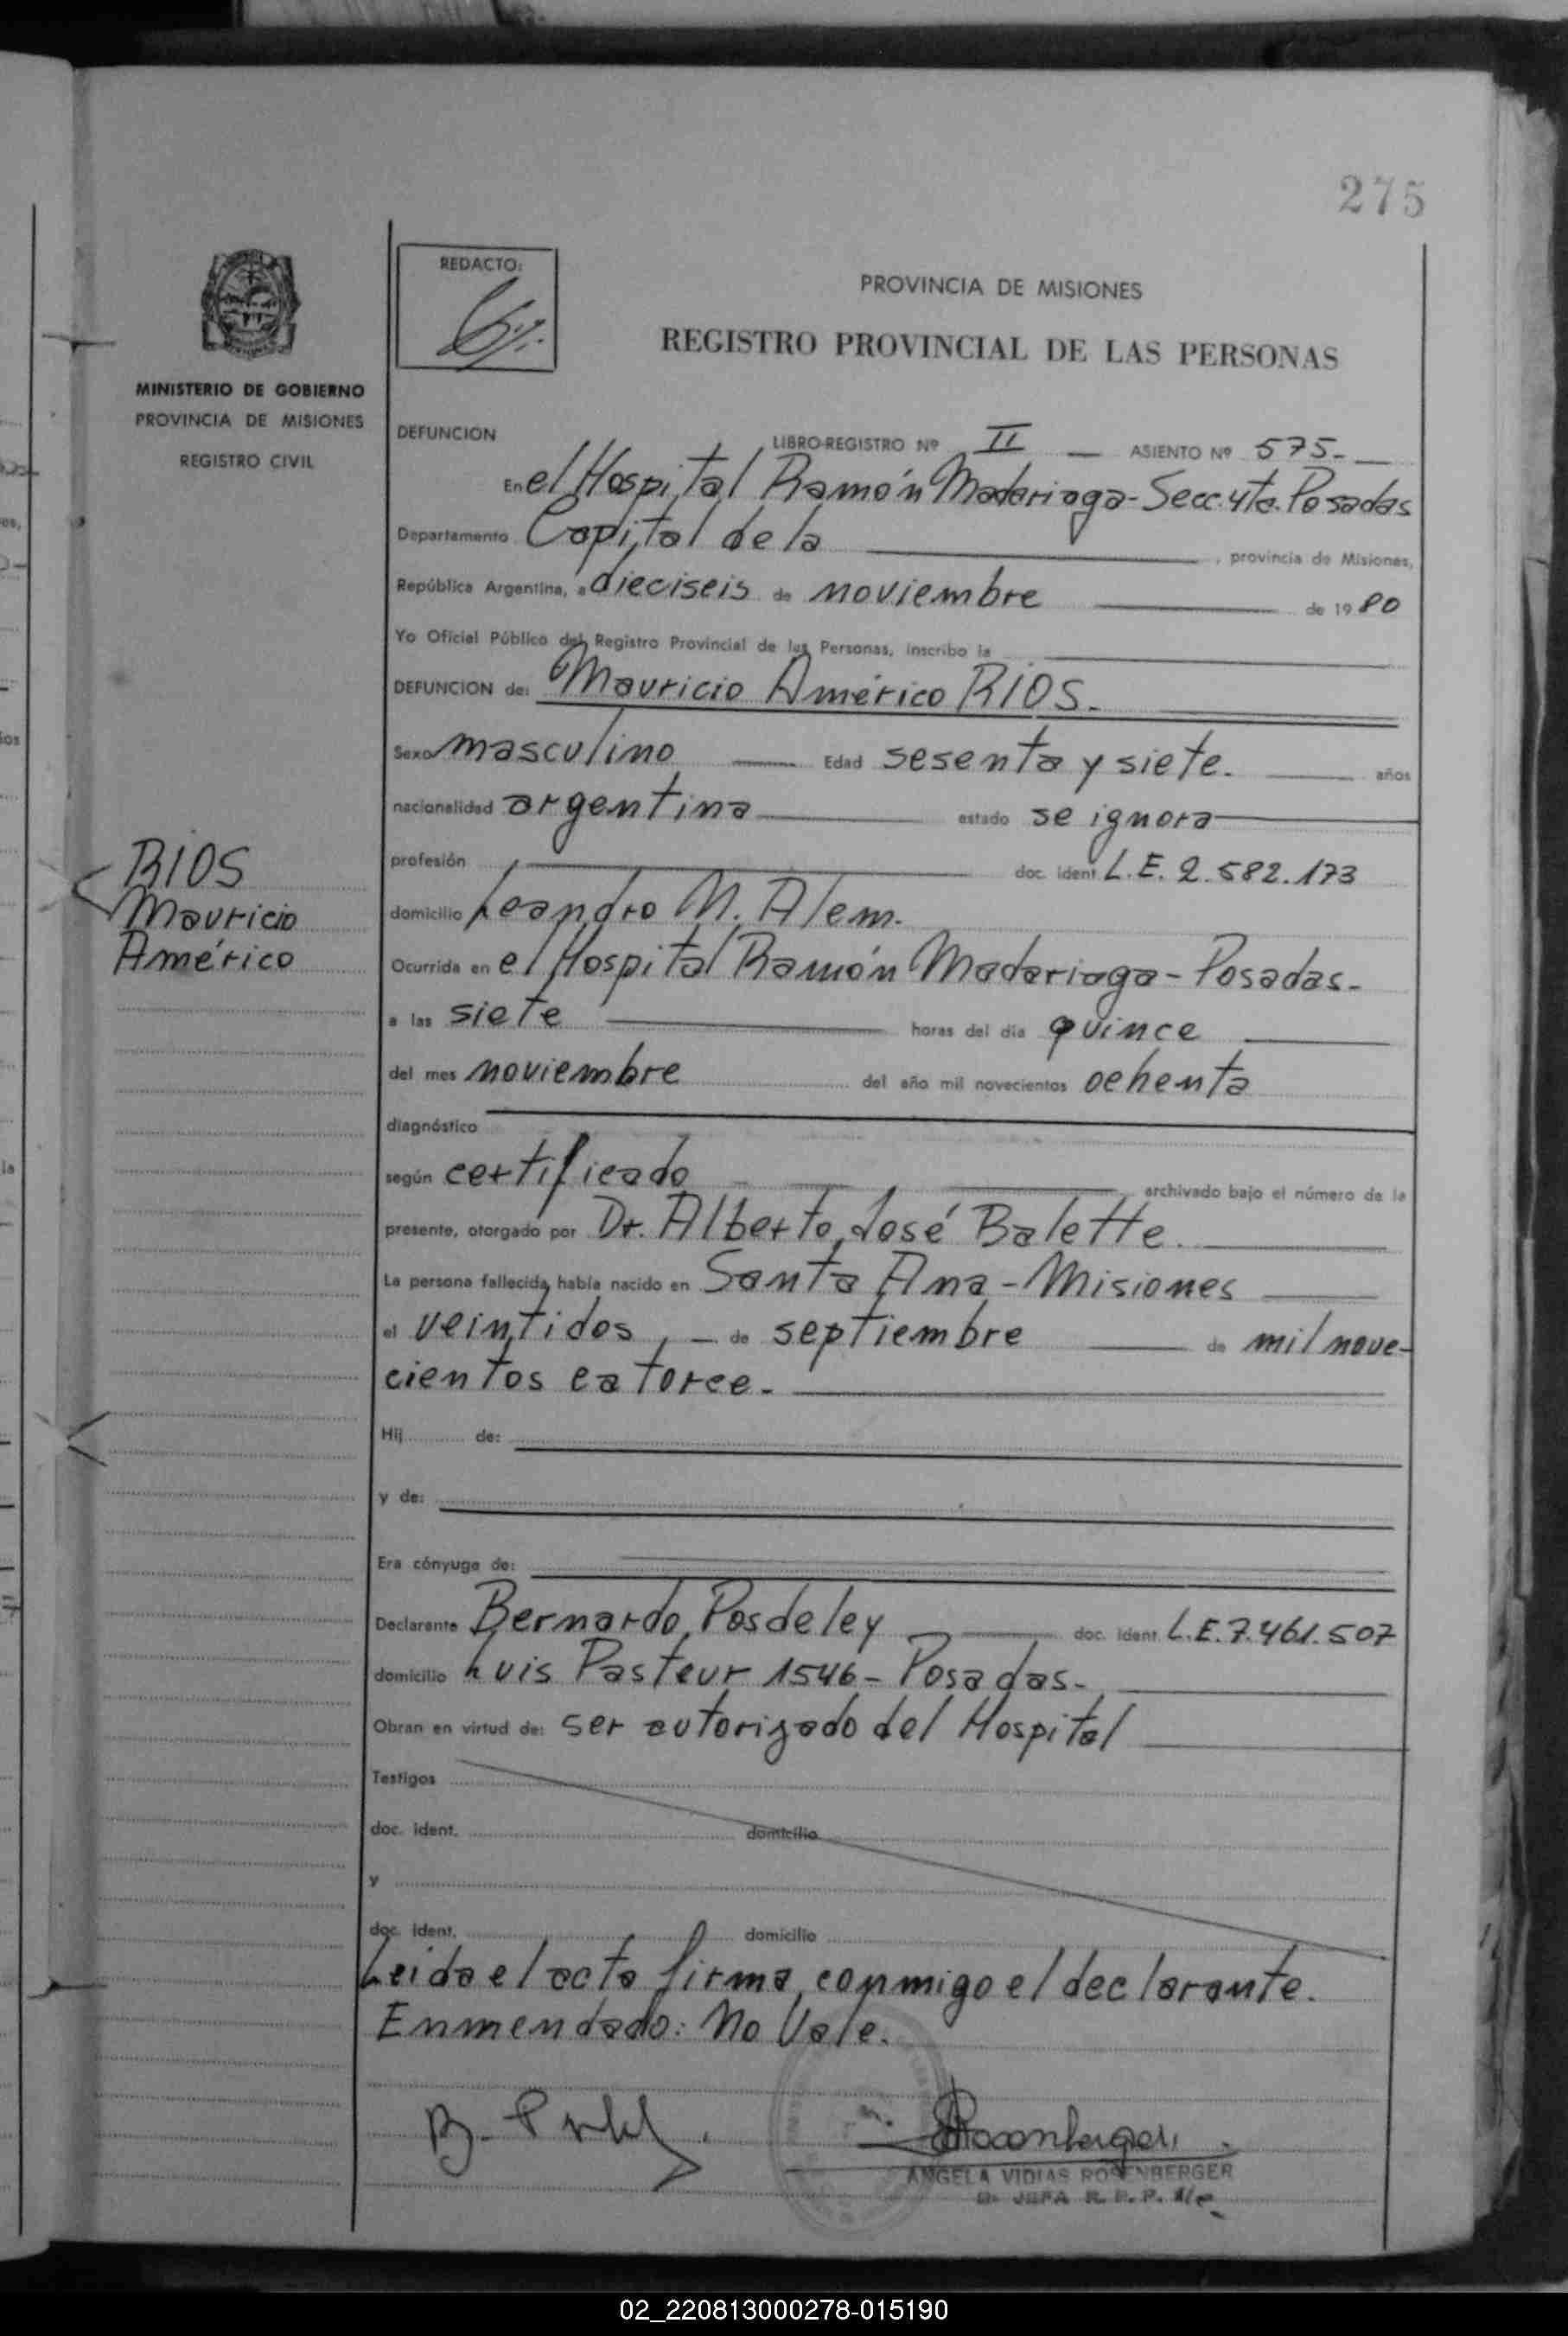 275
REDACTO:
PROVINCIA DE MISIONES
REGISTRO PROVINCIAL DE LAS PERSONAS
MINISTERIO DE GOBIERNO
PROVINCIA DE MISIONES
REGISTRO CIVIL
DEFUNCION LIBRO-REGISTRO Nº II — ASIENTO Nº 575.-
En el Hospital Ramón Madariaga - Secc. 4ta. Posadas
Departamento Capital de la , provincia de Misiones,
República Argentina, a dieciseis de noviembre de 1980
Yo Oficial Público del Registro Provincial de las Personas, inscribo la
DEFUNCION de: Mauricio Américo RIOS.-
Sexo masculino Edad sesenta y siete. años
nacionalidad argentina estado se ignora
profesión doc. ident. L.E. 2.582.173
RIOS
Mauricio
Américo
domicilio Leandro N. Alem.
Ocurrida en el Hospital Ramón Madariaga - Posadas.-
a las siete horas del día quince
del mes noviembre del año mil novecientos ochenta
diagnóstico
según certificado archivado bajo el número de la
presente, otorgado por Dr. Alberto José Balette.
La persona fallecida había nacido en Santa Ana - Misiones
el veintidos, - de septiembre de mil nove-
cientos catorce.-
Hij de:
y de:
Era cónyuge de:
Declarante Bernardo Posdeley doc. ident. L.E. 7.461.507
domicilio Luis Pasteur 1546 - Posadas.-
Obran en virtud de: ser autorizado del Hospital
Testigos
doc. ident. domicilio
y
doc. ident. domicilio
Leida el acta firma conmigo el declarante.
Enmendado: No Vale.
B.
Rosenberger
ANGELA VIDIAS ROSENBERGER
JEFA R. P. P.
02_220813000278-015190